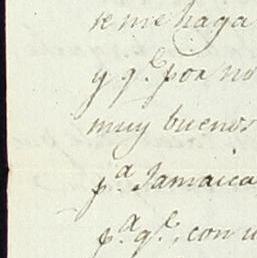 se me haga
y q.e por no
muy buenos
p.a Jamaica
p.a q.e, con u